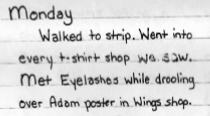 Monday
Walked to strip. Went into
every t-shirt shop we saw.
Met Eyelashes while drooling
over Adam poster in Wings shop.